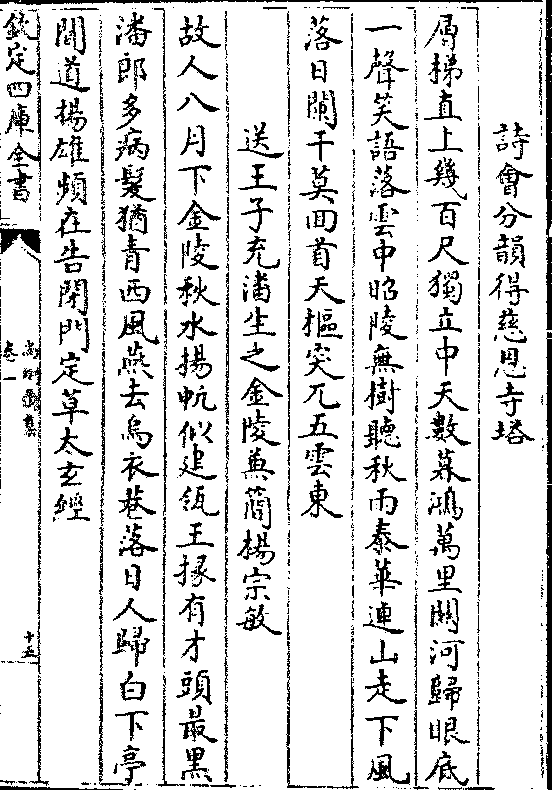 詩會分韻得慈恩寺塔
層梯直上幾百尺獨立中天數暮鴻萬里關河歸眼底
一聲笑語落雲中昭陵無樹聽秋雨泰華連山走下風
落日闌干莫回首天樞突兀五雲東
送王子充潘生之金陵兼簡楊宗敏
故人八月下金陵秋水揚帆似建瓴王掾有才頭最黑
潘郎多病髮猶青西風燕去烏衣巷落日人歸白下亭
聞道楊雄頻在告閉門定草太玄經
欽定四庫全書
卷一
十五